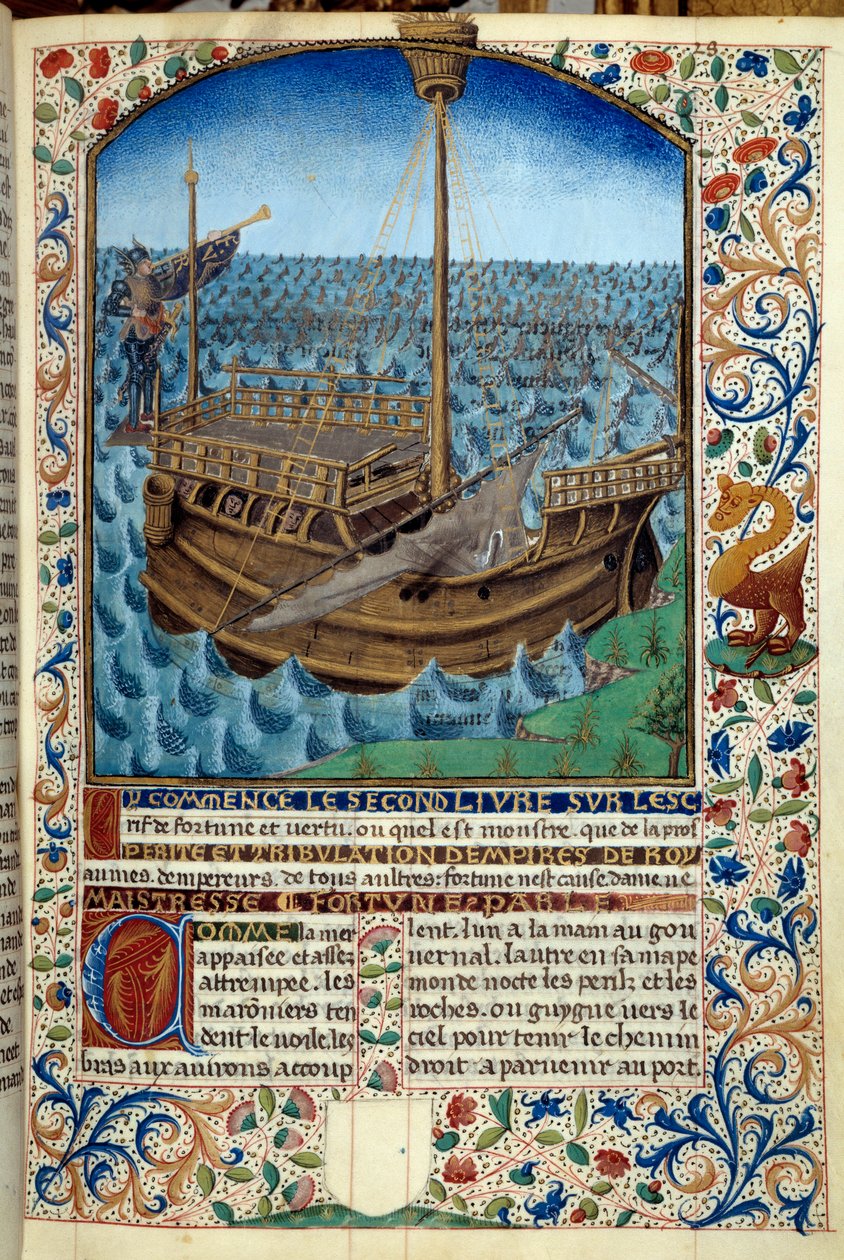 CY COMMENCE LE SECOND LIVRE SUR LESC
rif de fortune et vertu. ou quel est monstre. que de la pros
PERITE ET TRIBULATION DEMPIRES DE ROY
aumes. dempereurs. de tous aultres: fortune nest cause dame ne
MAISTRESSE ⁋ FORTUNE PARLE
COMME la mer
appaisee et assez
attrempee. les
marōniers ten
dent le voile. les
bras aux avirons accoup
lent. lun a la main au gou
vernal. lautre en sa mape
monde nocte les perilz et les
roches. ou guygne vers le
ciel pour tenir le chemin
droit a parvenir au port.